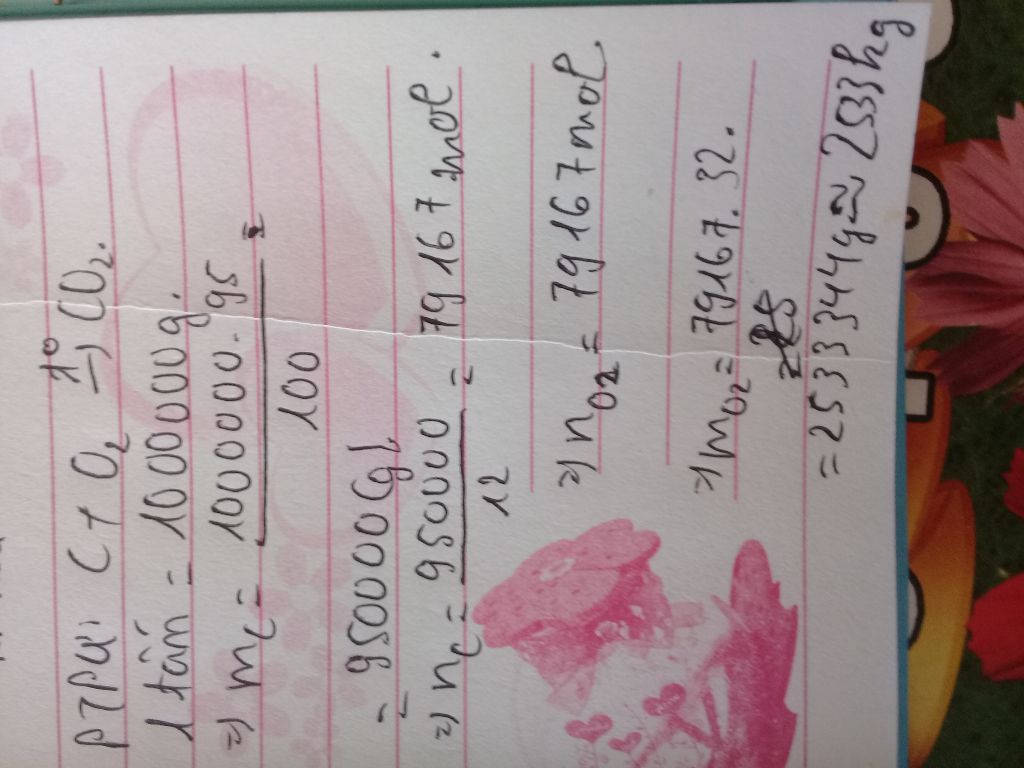 PTPƯ: C + O₂ →(t⁰) CO₂.
1 tấn = 1000000 g.
=> m_C = 1000000.95 / 100 =
= 950000 (g).
=> n_C = 950000 / 12 = 79167 mol.
=> n_O₂ = 79167 mol.
=> m_O₂ = 79167.32.
= 2533344g ≈ 2533 kg